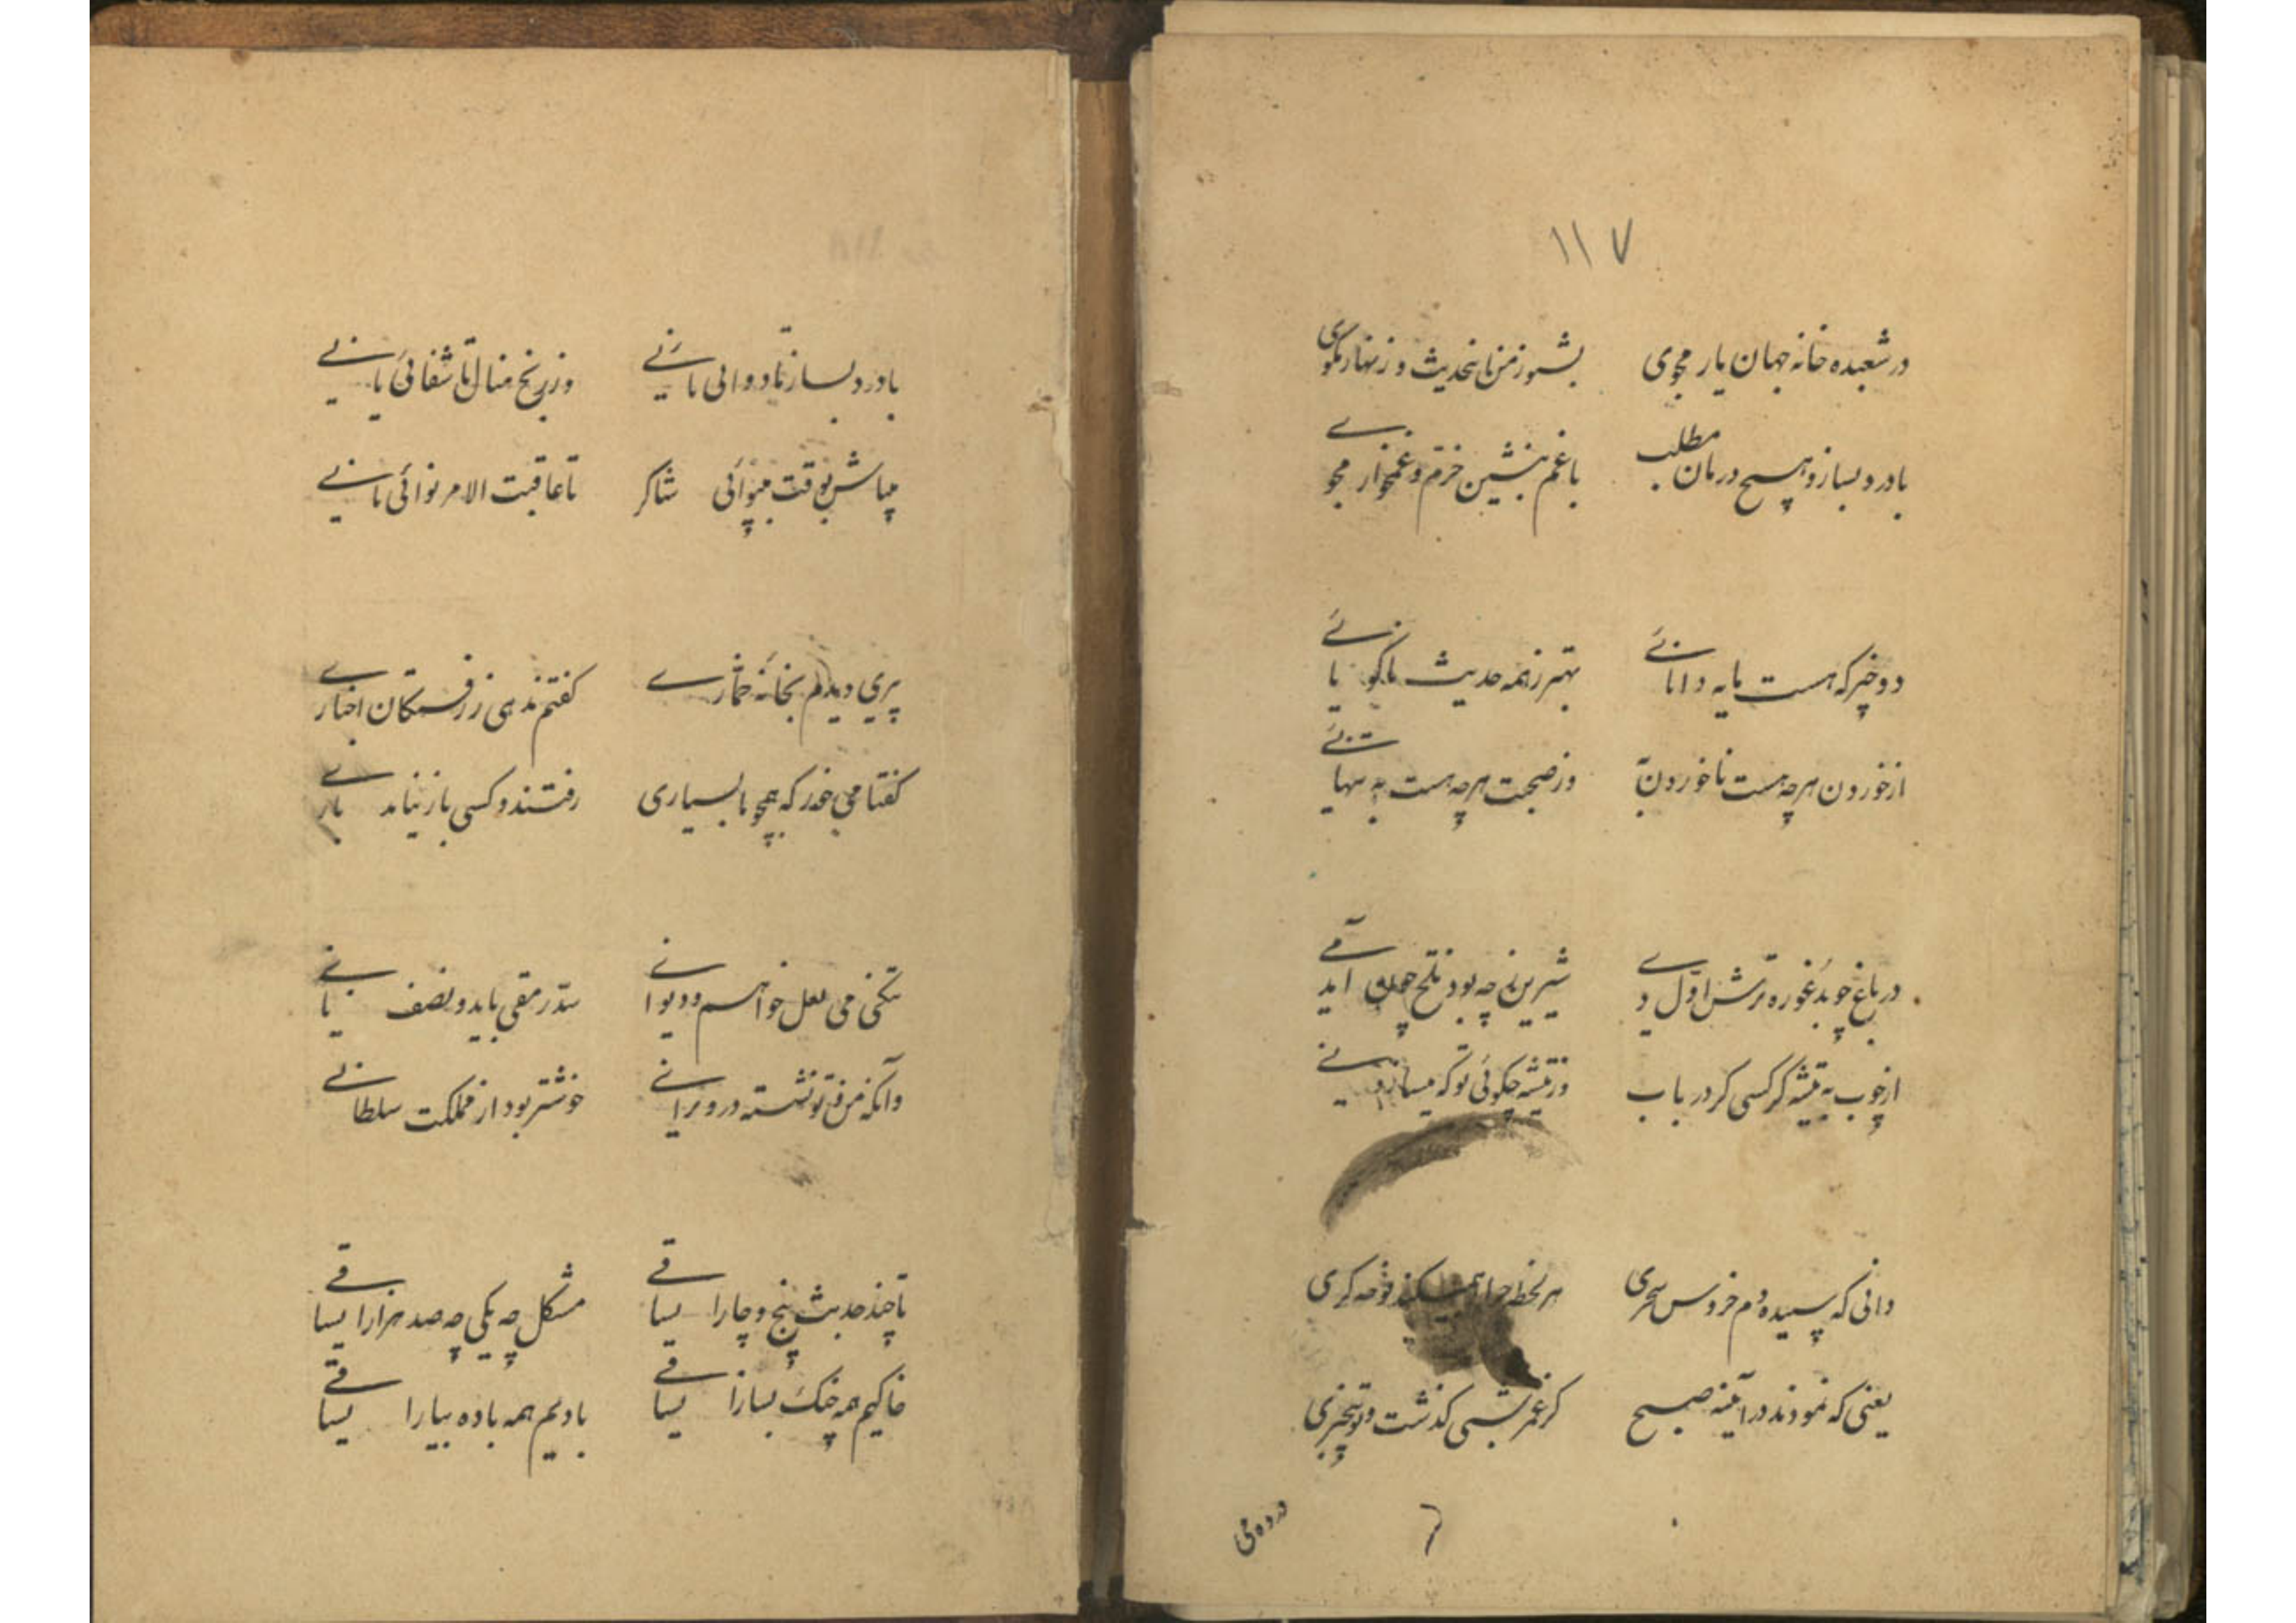 ۱۱۷
در شعبده خانه جهان یار مجوی بشنو ز من این حدیث و زنهار مگوی
با درد بساز و هیچ درمان مطلب با غم بنشین خرم و غمخوار مجوی
دو خبر که هست مایه دانائی بهتر ز همه حدیث ناگویائی
از خوردن هرچه هست ناخوردن به وز صحبت هرچه هست به تنهائی
در باغ چو بد غوره ترش اول دی شیرین ز چه بود تلخ چون آید می
از چوب به تیشه گر کسی کرد رباب در تیشه چگوئی تو که میسازد نی
دانی که سپیده دم خروس سحری هر لحظه چرا همیکند نوحه گری
یعنی که نمودند در آیینه صبح کز عمر شبی گذشت و تو بیخبری
در ده می
با درد بساز تا دوائی یابی وز رنج منال تا شفائی یابی
میباش بوقت بینوائی شاکر تا عاقبت الامر نوائی یابی
پیری دیدم بخانه خماری گفتم ندهی ز رفتگان اخباری
گفتا می خور که همچو ما بسیاری رفتند و کسی باز نیامد باری
تنگی می لعل خواهم و دیوانی سد رمقی باید و نصف نانی
وآنگه من و تو نشسته در ویرانی خوشتر بود از مملکت سلطانی
تا چند حدیث پنج و چار ای ساقی مشکل چه یکی چه صد هزار ای ساقی
خاکیم همه چنگ بساز ای ساقی بادیم همه باده بیار ای ساقی